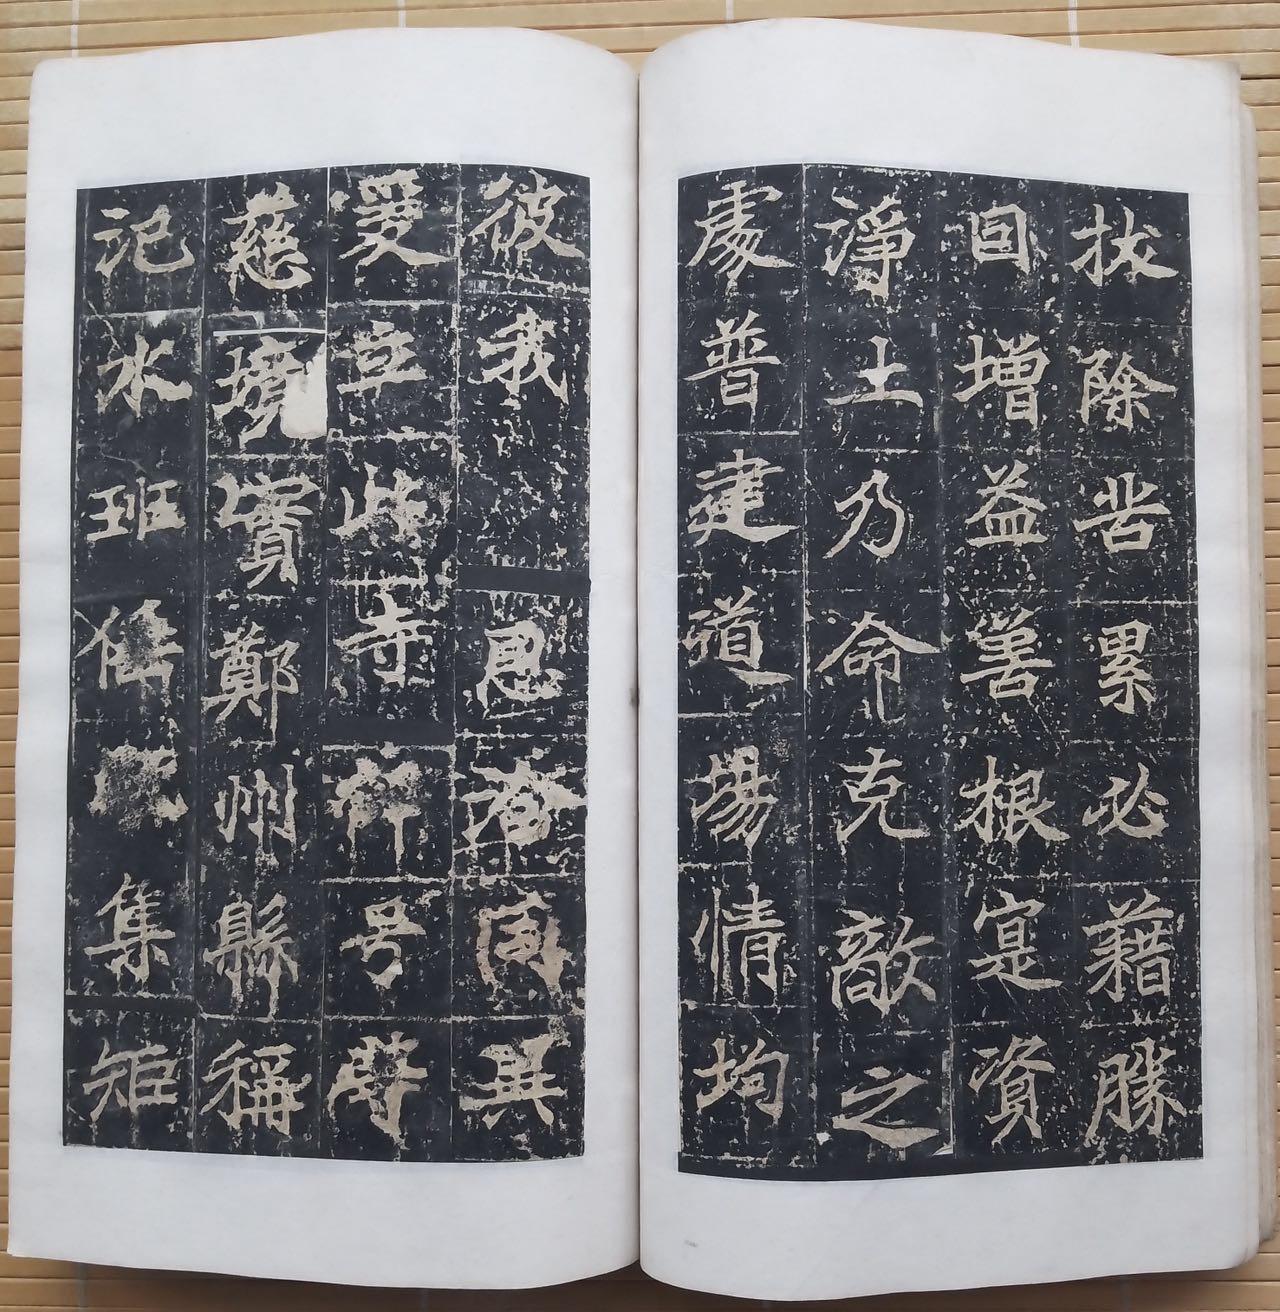 拔除苦累必藉勝
因增益善根寔資
淨土乃命克敵之
處普建道場情均
彼我恩洽同異
爰立此寺号等
慈境實鄭州縣稱
汜水班倕集矩